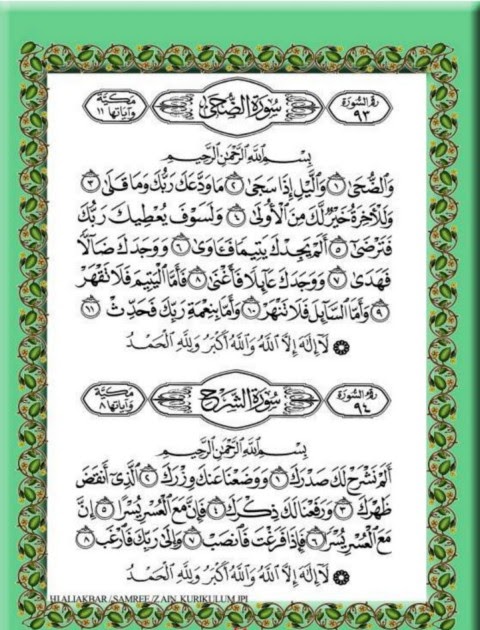 رقم السورة ٩٣ سُورَةُ الضُّحَىٰ مكية وآياتها ١١
بِسْمِ اللَّهِ الرَّحْمَٰنِ الرَّحِيمِ
وَالضُّحَىٰ ١ وَاللَّيْلِ إِذَا سَجَىٰ ٢ مَا وَدَّعَكَ رَبُّكَ وَمَا قَلَىٰ ٣
وَلَلْآخِرَةُ خَيْرٌ لَكَ مِنَ الْأُولَىٰ ٤ وَلَسَوْفَ يُعْطِيكَ رَبُّكَ
فَتَرْضَىٰ ٥ أَلَمْ يَجِدْكَ يَتِيمًا فَآوَىٰ ٦ وَوَجَدَكَ ضَالًّا
فَهَدَىٰ ٧ وَوَجَدَكَ عَائِلًا فَأَغْنَىٰ ٨ فَأَمَّا الْيَتِيمَ فَلَا تَقْهَرْ
٩ وَأَمَّا السَّائِلَ فَلَا تَنْهَرْ ١٠ وَأَمَّا بِنِعْمَةِ رَبِّكَ فَحَدِّثْ ١١
لَا إِلَٰهَ إِلَّا اللَّهُ وَاللَّهُ أَكْبَرُ وَلِلَّهِ الْحَمْدُ
رقم السورة ٩٤ سُورَةُ الشَّرْحِ مكية وآياتها ٨
بِسْمِ اللَّهِ الرَّحْمَٰنِ الرَّحِيمِ
أَلَمْ نَشْرَحْ لَكَ صَدْرَكَ ١ وَوَضَعْنَا عَنْكَ وِزْرَكَ ٢ الَّذِي أَنْقَضَ
ظَهْرَكَ ٣ وَرَفَعْنَا لَكَ ذِكْرَكَ ٤ فَإِنَّ مَعَ الْعُسْرِ يُسْرًا ٥ إِنَّ
مَعَ الْعُسْرِ يُسْرًا ٦ فَإِذَا فَرَغْتَ فَانْصَبْ ٧ وَإِلَىٰ رَبِّكَ فَارْغَبْ ٨
لَا إِلَٰهَ إِلَّا اللَّهُ وَاللَّهُ أَكْبَرُ وَلِلَّهِ الْحَمْدُ
HJ ALIAKBAR /SAMREE /Z AIN_KURIKULUM JPJ